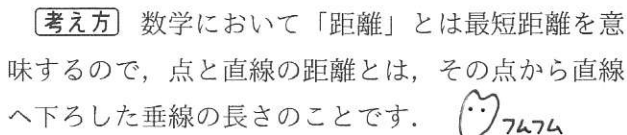 考え方 数学において「距離」とは最短距離を意
味するので，点と直線の距離とは，その点から直線
へ下ろした垂線の長さのことです． フムフム